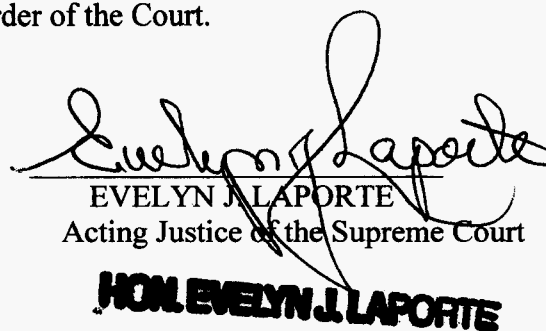 rder of the Court.
Evelyn J Laporte
EVELYN J. LAPORTE
Acting Justice of the Supreme Court
HON. EVELYN J. LAPORTE